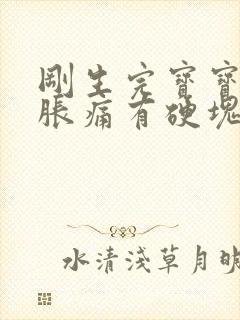 剛生完寶寶
脹痛有硬塊
水清淺草月映